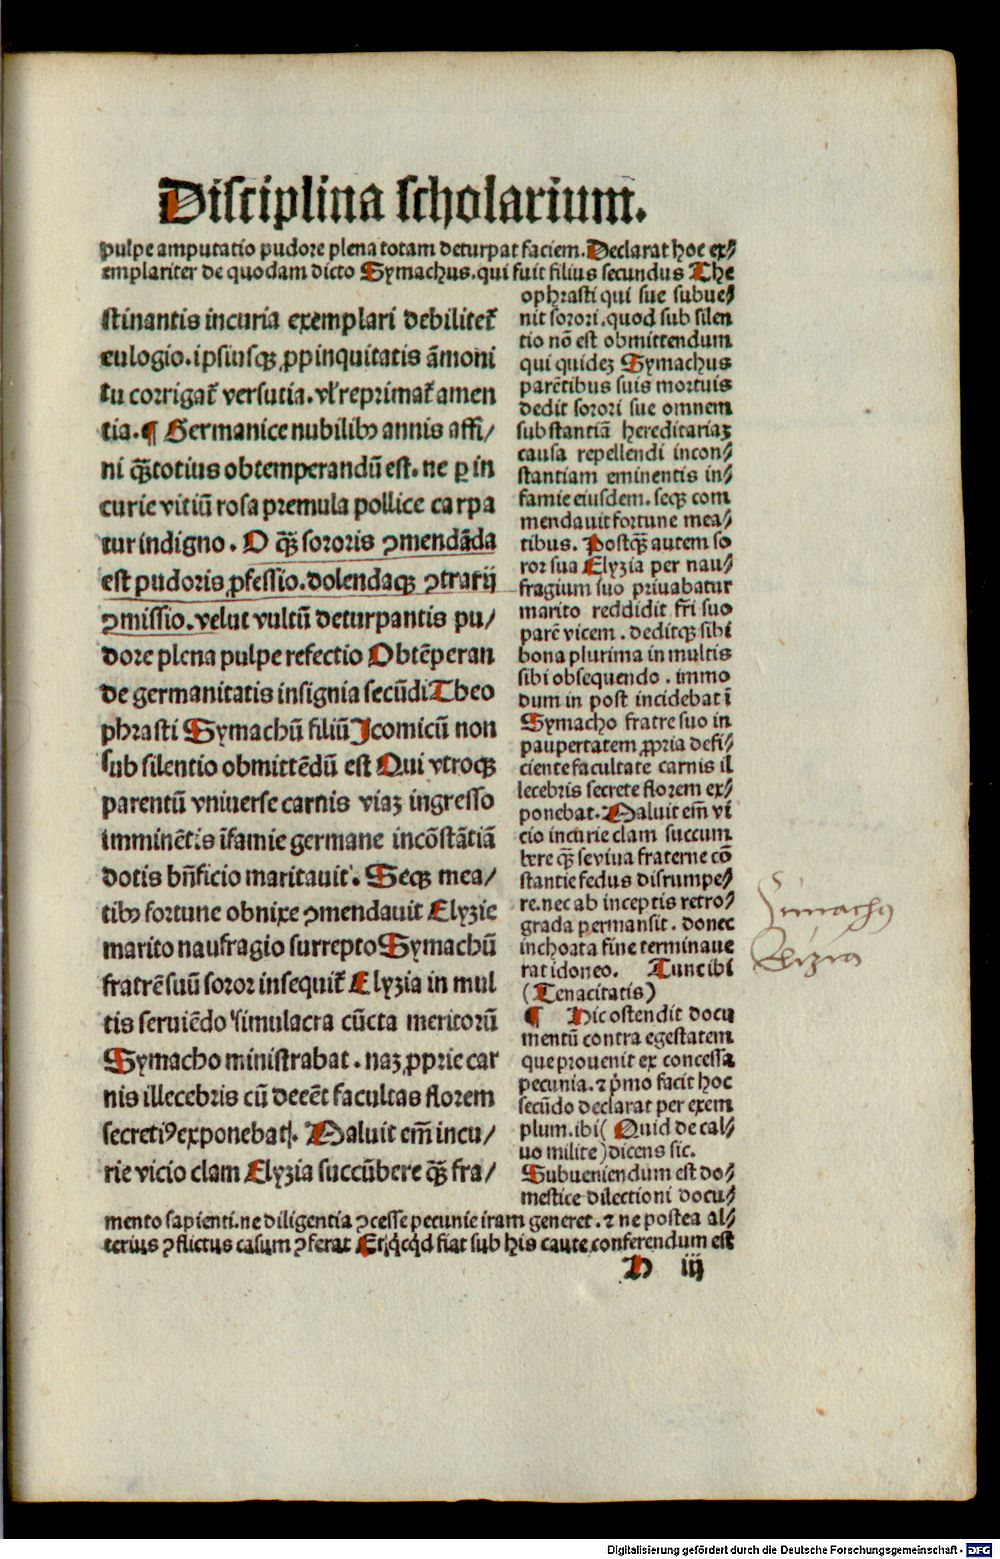 Disciplina scholarium.
pulpe amputatio pudore plena totam deturpat faciem. Declarat hoc ex⸗
emplariter de quodam dicto Symachus. qui fuit filius secundus The
ophrasti qui sue subue⸗
nit sorori. quod sub silen
tio nō est obmittendum
qui quidez Symachus
parētibus suis mortuis
dedit sorori sue omnem
substantiā hereditariaz
causa repellendi incon⸗
stantiam eminentis in⸗
famie eiusdem. seqꝫ com
mendauit fortune mea⸗
tibus. Postqꝫ̄ autem so
ror sua Elyzia per nau⸗
fragium suo priuabatur
marito reddidit fr̄i suo
parē vicem. deditqꝫ sibi
bona plurima in multis
sibi obsequendo. immo
dum in post incidebat ī
Symacho fratre suo in
paupertatem ꝓpria defi⸗
ciente facultate carnis il
lecebris secrete florem ex⸗
ponebat. Maluit em̄ vi
cio incurie clam succum
bere qꝫ̄ seuiua fraterne cō
stantie fedus disrumpe⸗
re. nec ab inceptis retro⸗
grada permansit. donec
inchoata fine terminaue
rat idoneo. Tunc ibi
(Tenacitatis)
¶ Hic ostendit docu
mentū contra egestatem
que prouenit ex concessa
pecunia. ⁊ p̄mo facit hoc
secūdo declarat per exem
plum. ibi( Quid de cal⸗
uo milite)dicens sic.
Subueniendum est do⸗
mestice dilectioni docu⸗
stinantis incuria exemplari debilitet᷑
eulogio. ipsiusqꝫ ꝓpinquitatis āmoni
tu corrigat᷑ versutia. vl̄ reprimat᷑ amen
tia. ¶ Germanice nubilibꝰ annis affi/
ni qꝫ̄totius obtemperandū est. ne ꝑ in
curie vitiū rosa premula pollice carpa
tur indigno. O qꝫ̄ sororis ꝯmendāda
est pudoris ꝓfessio. dolendaqꝫ ꝯtrarij
ꝯmissio. velut vultū deturpantis pu/
dore plena pulpe refectio Obtēperan
de germanitatis insignia secūdi Theo
phrasti Symachū filiū Icomicū non
sub silentio obmittēdū est Qui vtroqꝫ
parentū vniuerse carnis viaz ingresso
imminētis īfamie germane incōstātiā
dotis bn̄ficio maritauit. Seqꝫ mea/
tibꝰ fortune obnixe ꝯmendauit Elyzie
marito naufragio surrepto Symachū
fratrē suū soror insequit᷑ Elyzia in mul
tis seruiēdo simulacra cūcta meritorū
Symacho ministrabat. naz ꝓprie car
nis illecebris cū deeēt facultas florem
secretiꝰ exponebat. Maluit em̄ incu/
rie vicio clam Elyzia succūbere qꝫ̄ fra/
Simachꝰ
Elizia
mento sapienti. ne diligentia ꝯcesse pecunie iram generet. ⁊ ne postea al⸗
terius ꝯflictus casum ꝯferat Et qͥcqͥd fiat sub his caute conferendum est
D iij
Digitalisierung gefördert durch die Deutsche Forschungsgemeinschaft - DFG